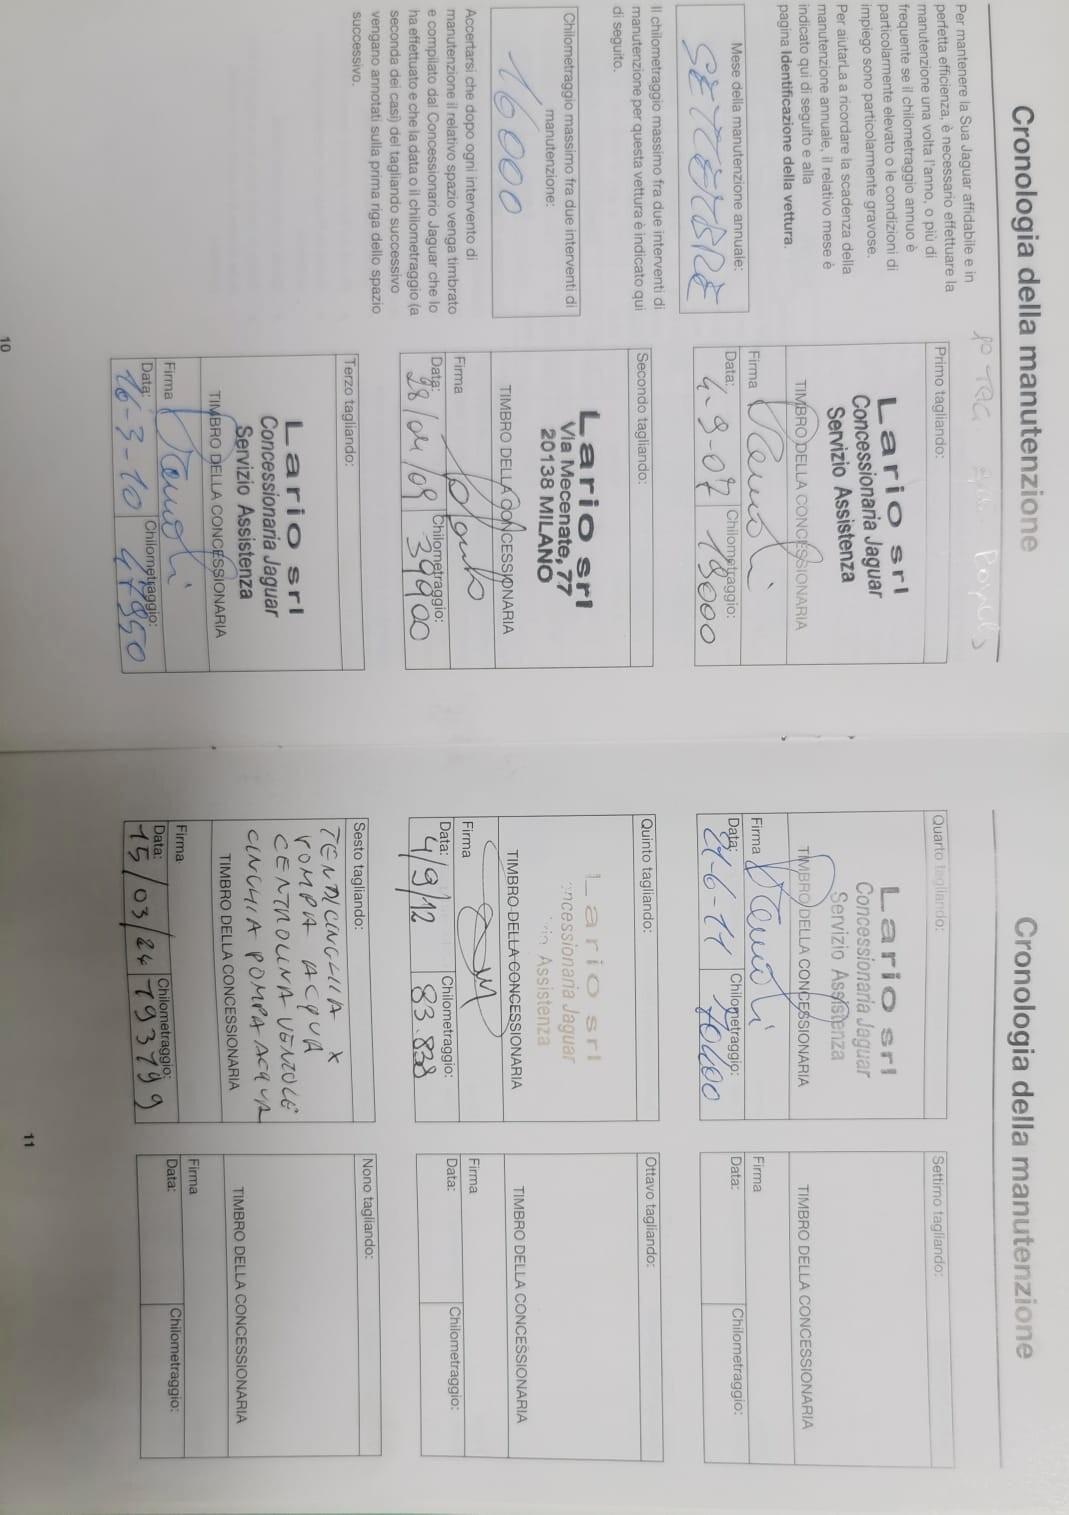 Cronologia della manutenzione
Per mantenere la Sua Jaguar affidabile e in
perfetta efficienza, è necessario effettuare la
manutenzione una volta l'anno, o più di
frequente se il chilometraggio annuo è
particolarmente elevato o le condizioni di
impiego sono particolarmente gravose.
Per aiutarLa a ricordare la scadenza della
manutenzione annuale, il relativo mese è
indicato qui di seguito e alla
pagina Identificazione della vettura.
Mese della manutenzione annuale:
SETTEMBRE
Il chilometraggio massimo fra due interventi di
manutenzione per questa vettura è indicato qui
di seguito.
Chilometraggio massimo fra due interventi di
manutenzione:
16000
Accertarsi che dopo ogni intervento di
manutenzione il relativo spazio venga timbrato
e compilato dal Concessionario Jaguar che lo
ha effettuato e che la data o il chilometraggio (a
seconda dei casi) del tagliando successivo
vengano annotati sulla prima riga dello spazio
successivo.
Primo tagliando:
Lario srl
Concessionaria Jaguar
Servizio Assistenza
TIMBRO DELLA CONCESSIONARIA
Firma
Data: 4-9-07 Chilometraggio: 18000
Secondo tagliando:
Lario srl
Via Mecenate, 77
20138 MILANO
TIMBRO DELLA CONCESSIONARIA
Firma
Data: 28/01/09 Chilometraggio: 39900
Terzo tagliando:
Lario srl
Concessionaria Jaguar
Servizio Assistenza
TIMBRO DELLA CONCESSIONARIA
Firma
Data: 16-3-10 Chilometraggio: 47850
10
Cronologia della manutenzione
Quarto tagliando:
Lario srl
Concessionaria Jaguar
Servizio Assistenza
TIMBRO DELLA CONCESSIONARIA
Firma
Data: 21-6-11 Chilometraggio: 70400
Quinto tagliando:
Lario srl
ncessionaria Jaguar
Assistenza
TIMBRO DELLA CONCESSIONARIA
Firma
Data: 4/9/12 Chilometraggio: 83.838
Sesto tagliando:
TENDICINGHIA x
POMPA ACQUA
CENTRALINA VENTOLE
CINGHIA POMPA ACQUA
TIMBRO DELLA CONCESSIONARIA
Firma
Data: 15/03/24 Chilometraggio: 79379
Settimo tagliando:
TIMBRO DELLA CONCESSIONARIA
Firma
Data: Chilometraggio:
Ottavo tagliando:
TIMBRO DELLA CONCESSIONARIA
Firma
Data: Chilometraggio:
Nono tagliando:
TIMBRO DELLA CONCESSIONARIA
Firma
Data: Chilometraggio:
11